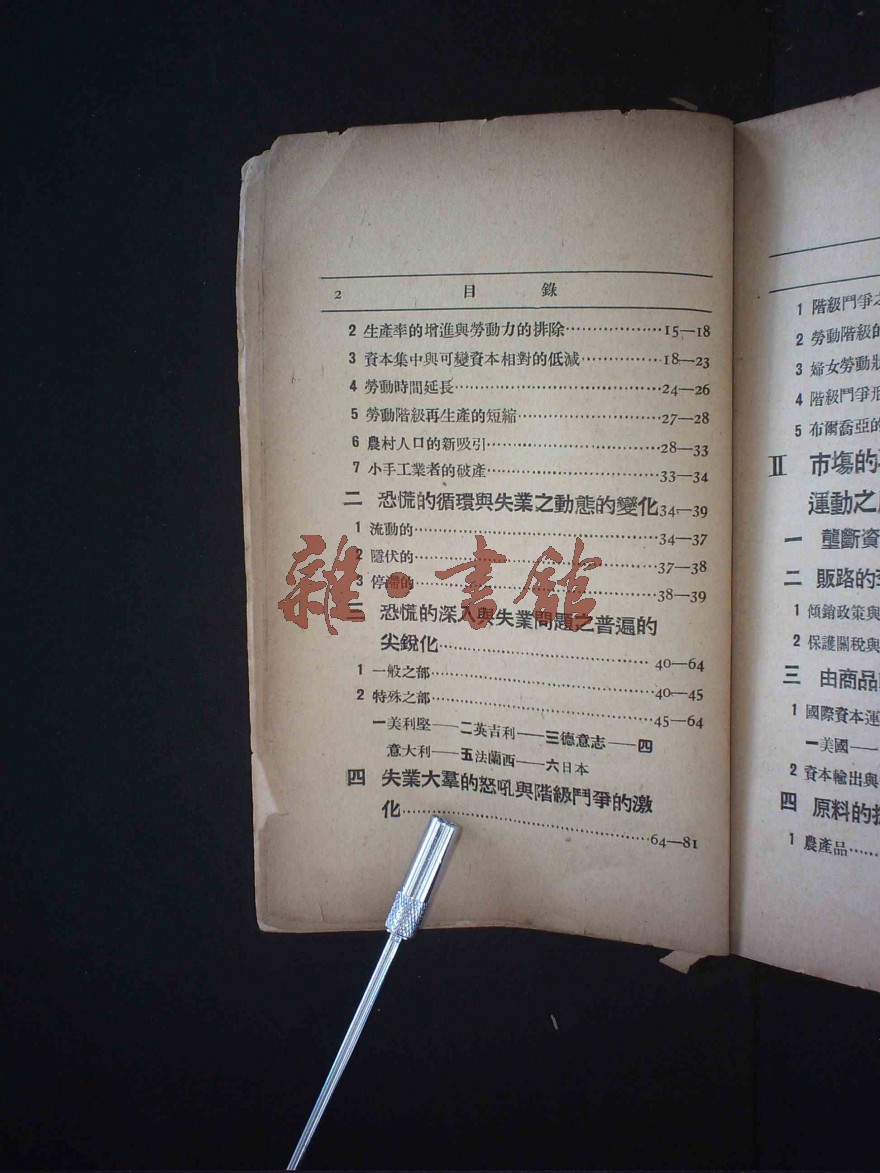 2 目 錄
2 生產率的增進與勞動力的排除…………………15—18
3 資本集中與可變資本相對的低減……………18—23
4 勞動時間延長……………………………………24—26
5 勞動階級再生產的短縮…………………………27—28
6 農村人口的新吸引………………………………28—33
7 小手工業者的破產………………………………33—34
二 恐慌的循環與失業之動態的變化34—39
1 流動的……………………………………………34—37
2 隱伏的……………………………………………37—38
3 停滯的……………………………………………38—39
三 恐慌的深入與失業問題之普遍的
尖銳化……………………………………40—64
1 一般之部…………………………………………40—45
2 特殊之部…………………………………………45—64
一美利堅——二英吉利——三德意志——四
意大利——五法蘭西——六日本
四 失業大羣的怒吼與階級鬥爭的激
化……………………………………………64—81
雜·書館
1 階級鬥爭之
2 勞動階級的
3 婦女勞動狀
4 階級鬥爭形
5 布爾喬亞的
II 市場的
運動之
一 壟斷資
二 販路的
1 傾銷政策與
2 保護關稅與
三 由商品
1 國際資本運
一美國——
2 資本輸出與
四 原料的
1 農產品……